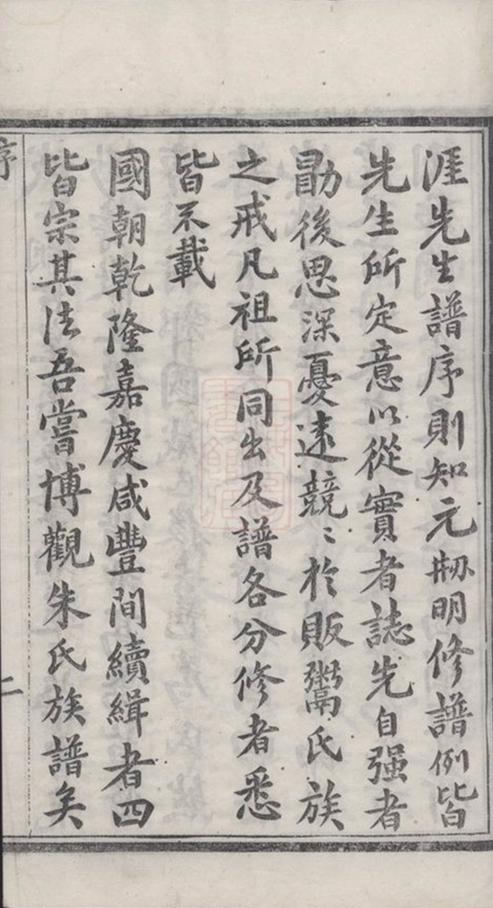 涯先生譜序則知元剙明修譜例皆
先生所定意以從實者誌先自强者
勖後思深憂遠競〻於販鬻氏族
之戒凡祖所同出及譜各分修者悉
皆不載
國朝乾隆嘉慶咸豐間續緝者四
皆宗其法吾嘗博觀朱氏族譜矣
序
二